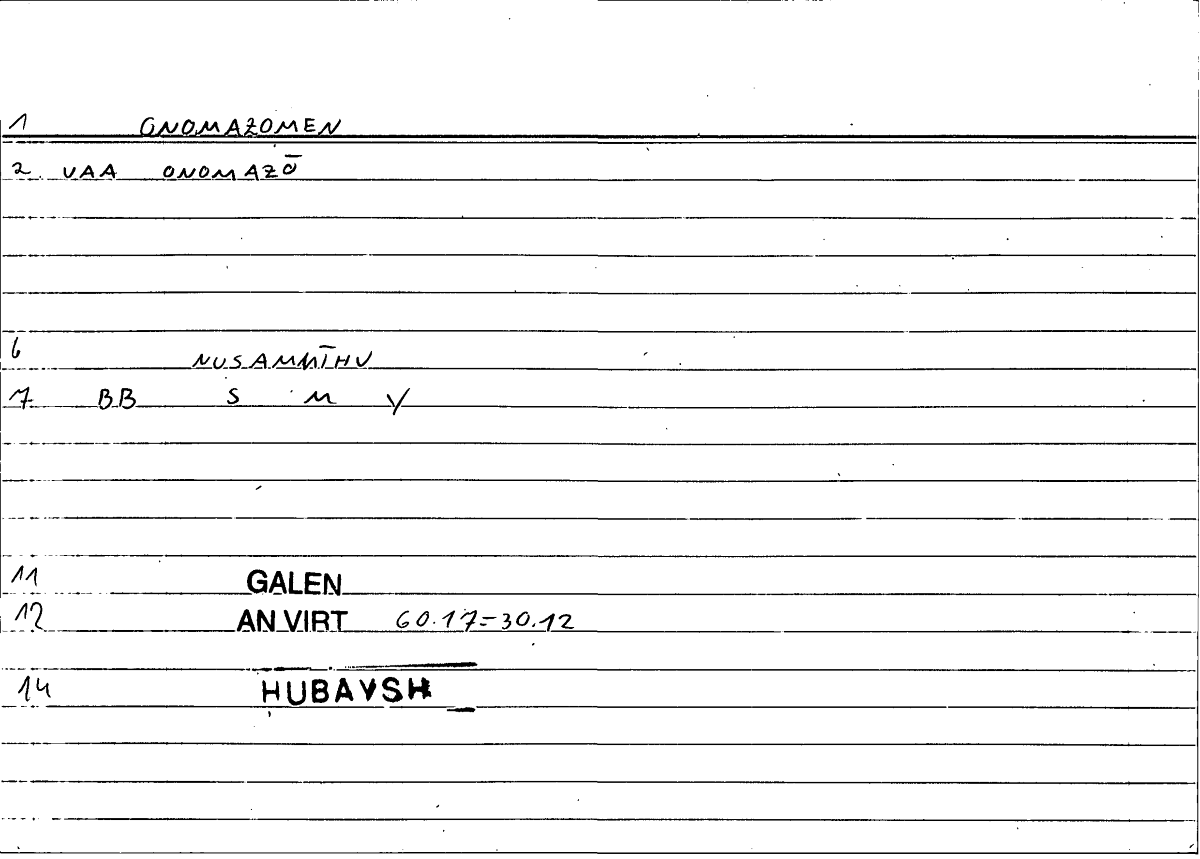 1 ONOMAZOMEN
2. VAA ONOMAZŌ
6 NUSAMMĪHU
7 BB S M Y
11 GALEN
12 AN VIRT 60.17=30.12
14 HUBAYSH